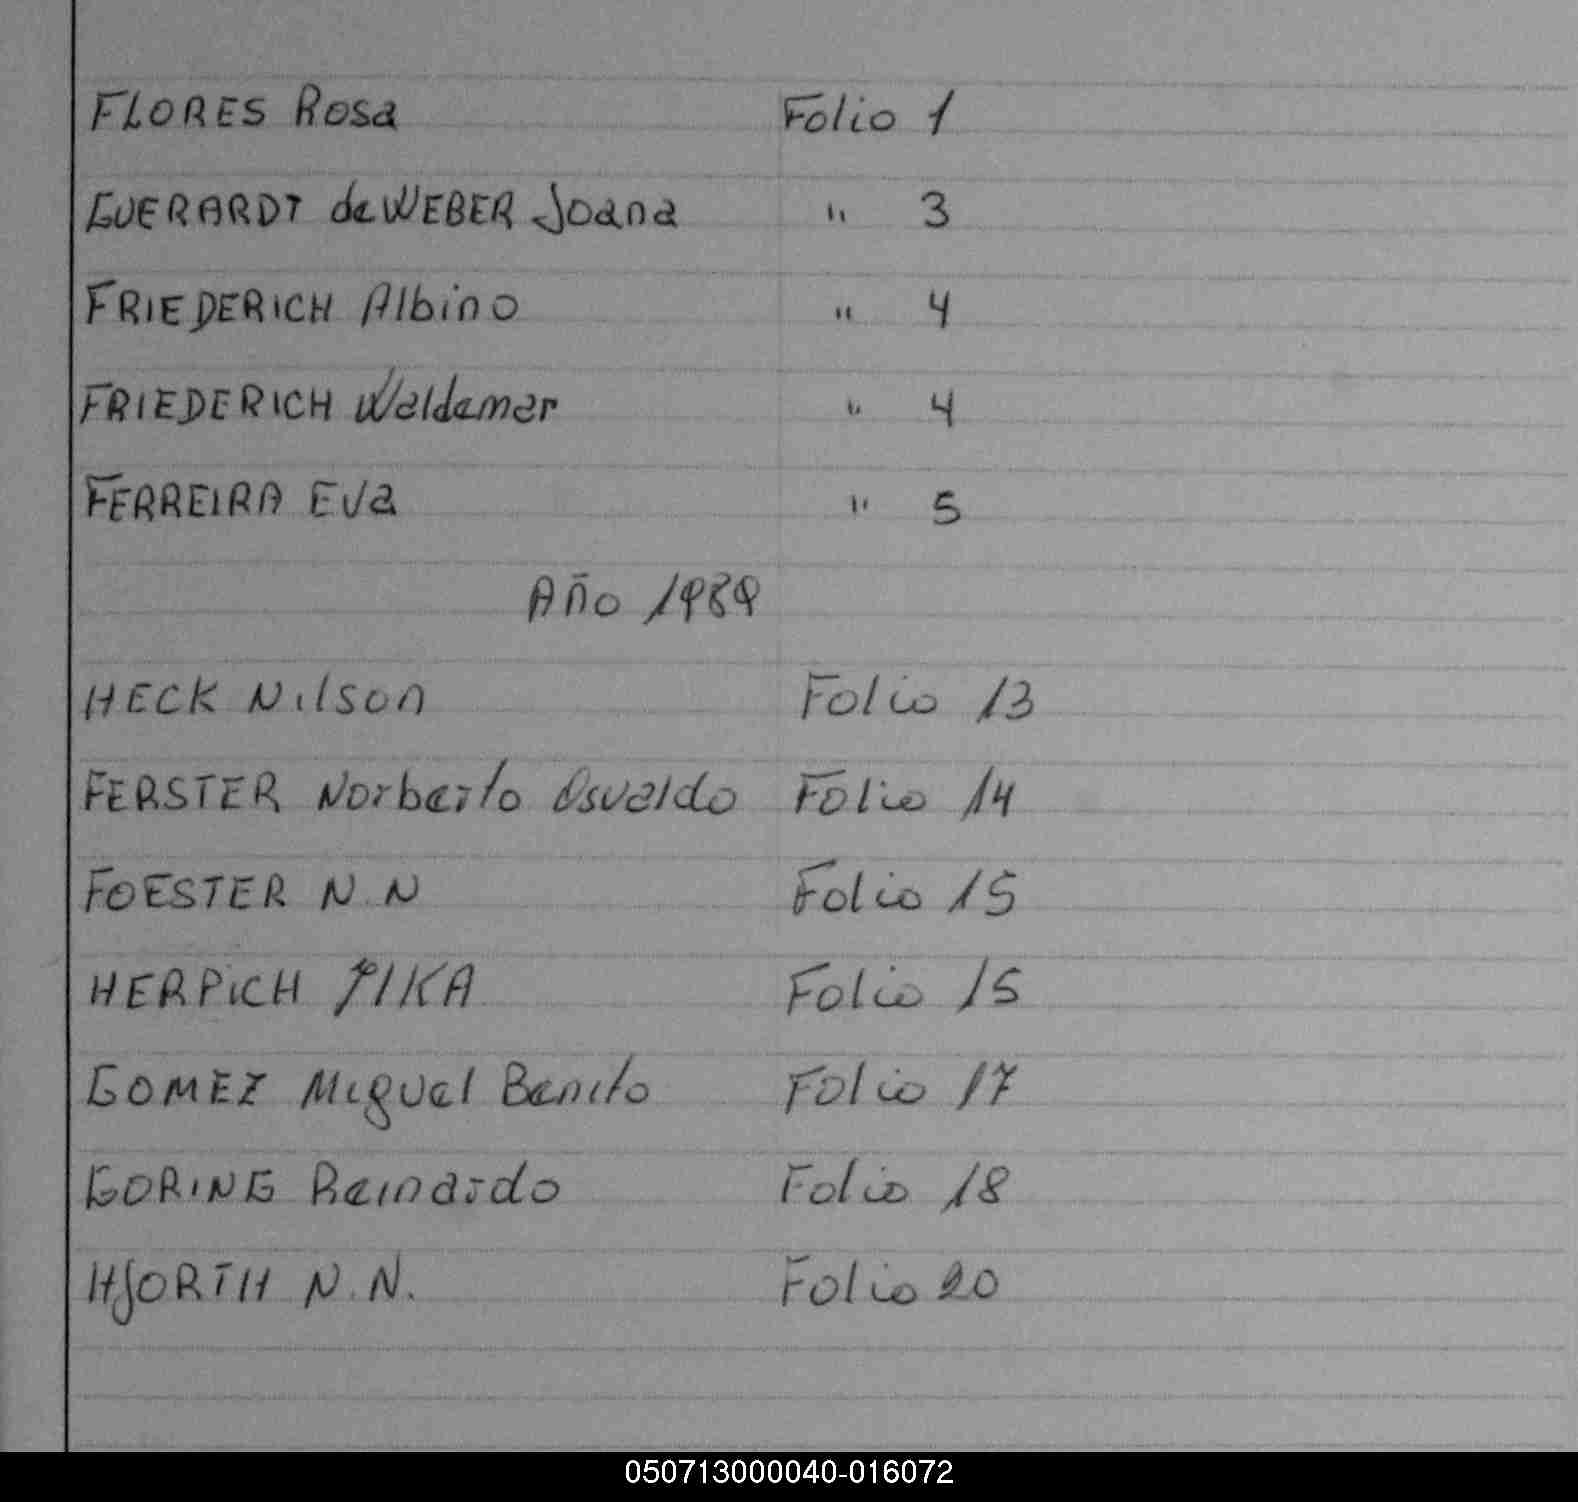 FLORES Rosa Folio 1
GUERARDT de WEBER Joana " 3
FRIEDERICH Albino " 4
FRIEDERICH Waldemar " 4
FERREIRA Eva " 5
Año 1989
HECK Nilson Folio 13
FERSTER Norberto Osvaldo Folio 14
FOESTER N.N Folio 15
HERPICH Folio 15
GOMEZ Miguel Benito Folio 17
GORING Reinardo Folio 18
HJORTH N.N. Folio 20
050713000040-016072